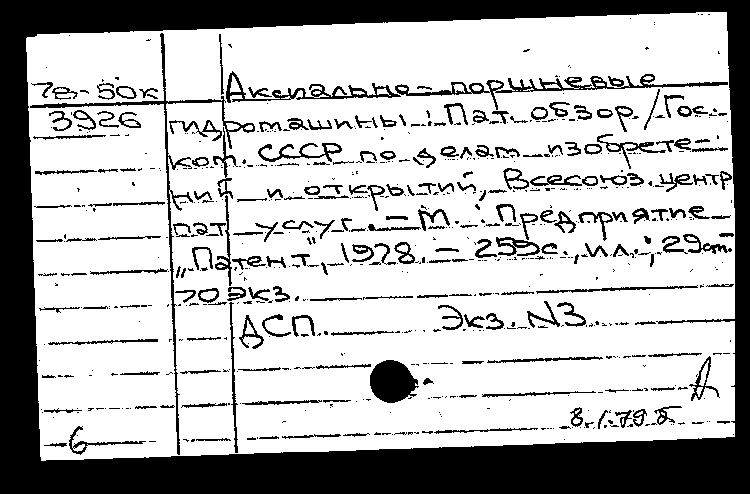 7в-50к Аксиально-поршневые
3926 гидромашины: Пат. обзор/Гос.
ком. СССР по делам изобрете-
ний и открытий, Всесоюз. центр
пат. услуг. - М.: Предприятие
„Патент", 1978. - 259с., ил.; 29см.
70экз.
ДСП. Экз. N3.
А
8.1.79
6